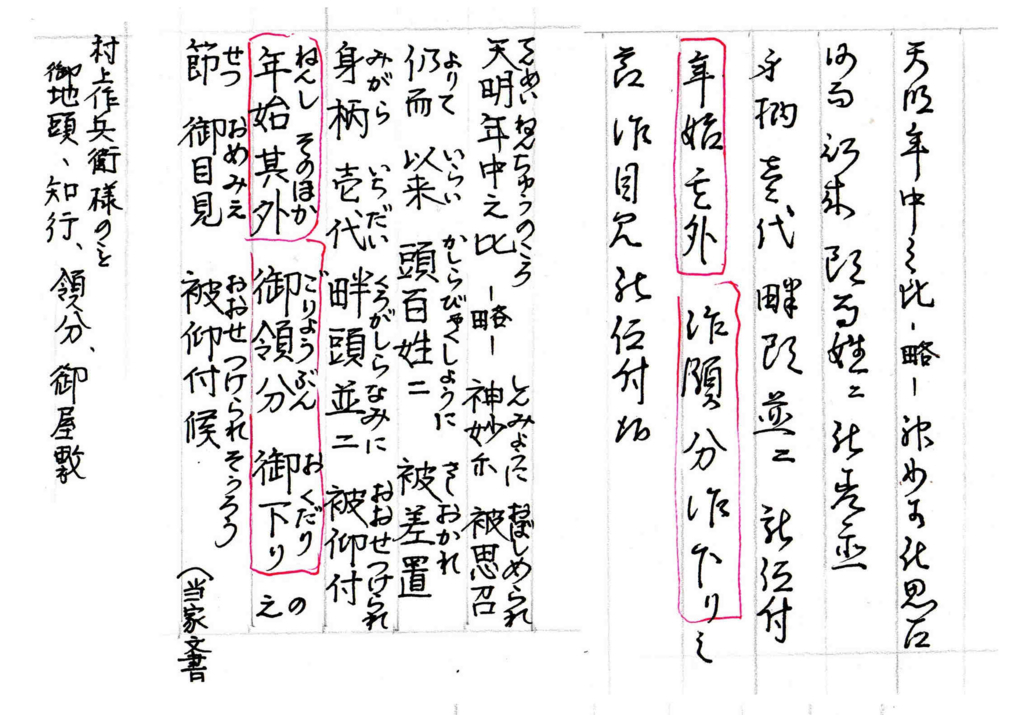 天明年中之比 ー略ー 神妙ニ被思召
仍而 以来 頭百姓ニ 被差置
身柄 壱代 畔頭並ニ 被仰付
年始其外 御領分御下り之
節 御目見 被仰付候
てんめいねんちゅうのころ しんみょうに おぼしめられ
天明年中之比 ー略ー 神妙尓 被思召
よりて いらい かしらびゃくしように さしおかれ
仍而 以来 頭百姓ニ 被差置
みがら いちだい くろがしらなみに おおせつけられ
身柄 壱代 畔頭並ニ 被仰付
ねんし そのほか ごりょうぶん おくだり の
年始其外 御領分 御下り 之
せつ おめみえ おおせつけられそうろう
節 御目見 被仰付候
(当家文書
村上作兵衛様のを
御地頭、知行、領分、御屋敷